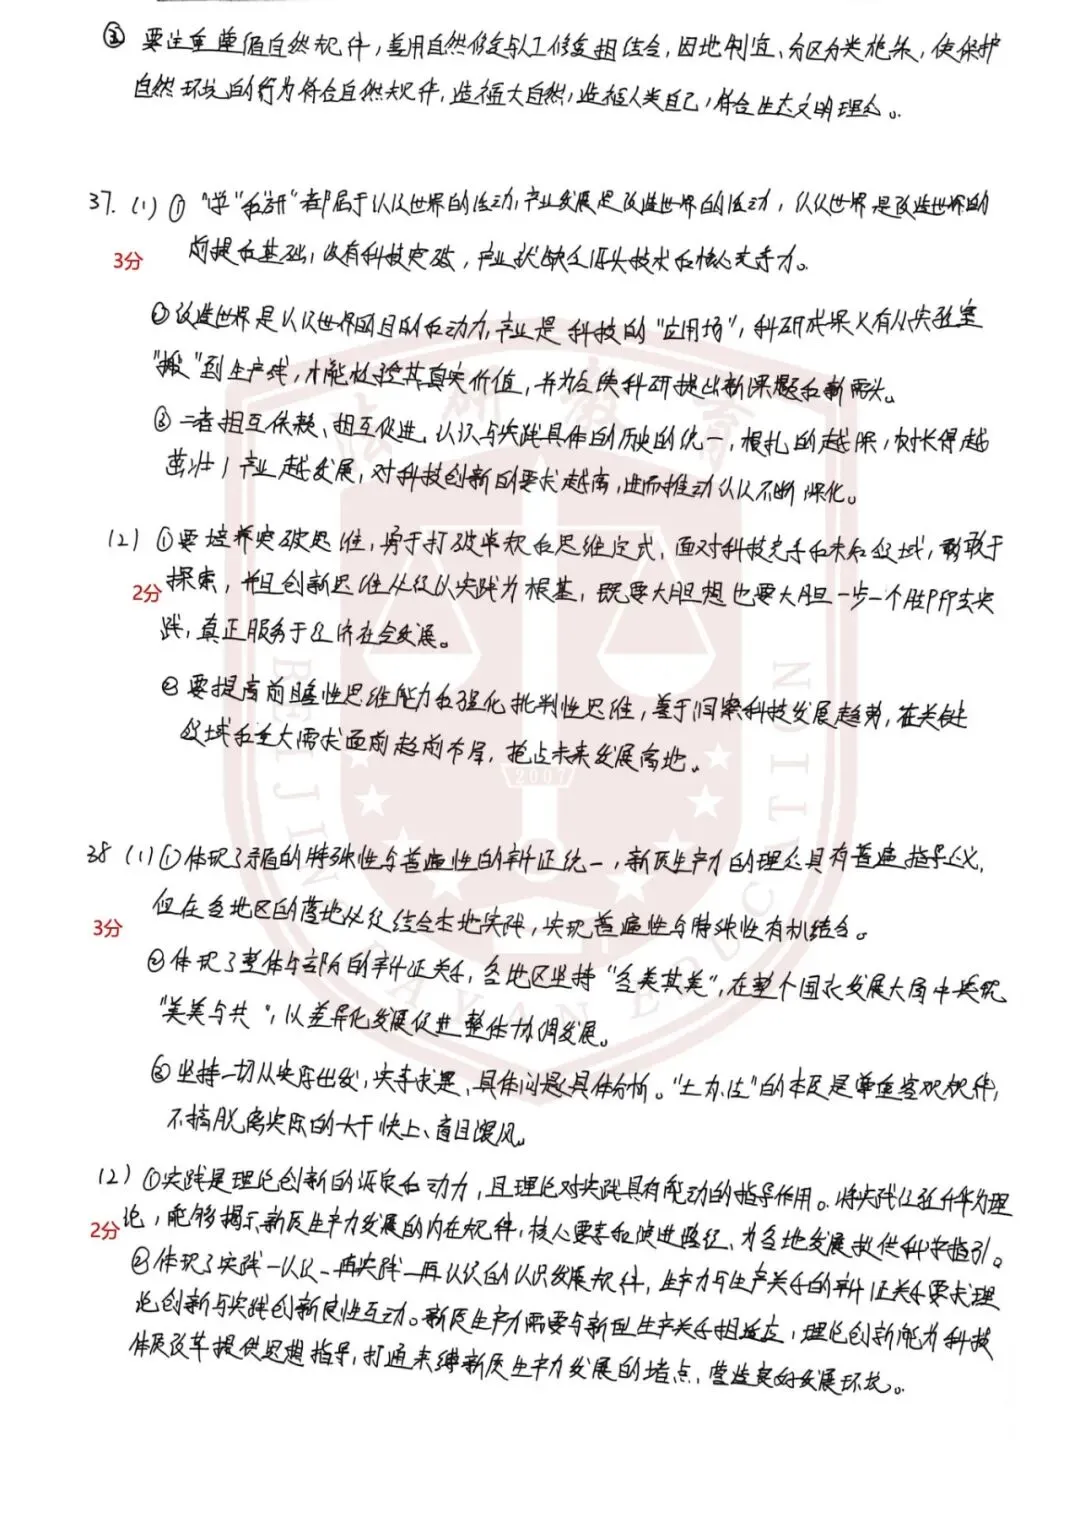 ③ 要注重尊循自然规律，善用自然修复与人工修复相结合，因地制宜、分区分类施策，使保护
自然环境的行为符合自然规律，造福大自然，造福人类自己，符合生态文明理念。
37. (1) ① "学"和"研"都属于认识世界的活动，产业发展是改造世界的活动，认识世界是改造世界的
3分
前提和基础，没有科技突破，产业就缺乏源头技术和核心竞争力。
② 改造世界是认识世界的目的和动力，产业是科技的"应用场"，科研成果只有从实验室
"搬"到生产线，才能检验其真实价值，并为反馈科研提出新课题和新需求。
③ 二者相互依赖、相互促进，认识与实践具体的历史的统一，根扎的越深，树长得越
茁壮，产业越发展，对科技创新的要求越高，进而推动认识不断深化。
(2) ① 要培养突破思维，勇于打破常规和思维定式，面对科技竞争和未知领域，勇敢于
2分
探索，并且创新思维必须以实践为根基，既要大胆想也要大胆一步一个脚印去实
践，真正服务于经济社会发展。
② 要提高前瞻性思维能力和强化批判性思维，善于洞察科技发展趋势，在关键
领域和重大需求面前超前布局，抢占未来发展高地。
38 (1) ① 体现了矛盾的特殊性与普遍性的辩证统一，新质生产力的理念具有普遍指导意义，
但在各地区的落地必须结合本地实践，实现普遍性与特殊性有机结合。
3分
② 体现了整体与部分的辩证关系，各地区坚持"各美其美"，在整个国家发展大局中实现
"美美与共"，以差异化发展促进整体协调发展。
③ 坚持一切从实际出发，实事求是、具体问题具体分析。"土办法"的本质是尊重客观规律，
不搞脱离实际的大干快上、盲目跟风。
(2) ① 实践是理论创新的源泉和动力，且理论对实践具有能动的指导作用。将实践经验升华为理
2分
论，能够揭示新质生产力发展的内在规律，核心要素和演进路径，为各地发展提供科学指引。
② 体现了实践—认识—再实践—再认识的认识发展规律，生产力与生产关系的辩证关系要求理
论创新与实践创新良性互动。新质生产力需要与新型生产关系相适应，理论创新能为科技
体质改革提供思想指导，打通束缚新质生产力发展的堵点，营造良好发展环境。
法研教育
BEIJING FAYAN EDUCATION
2007